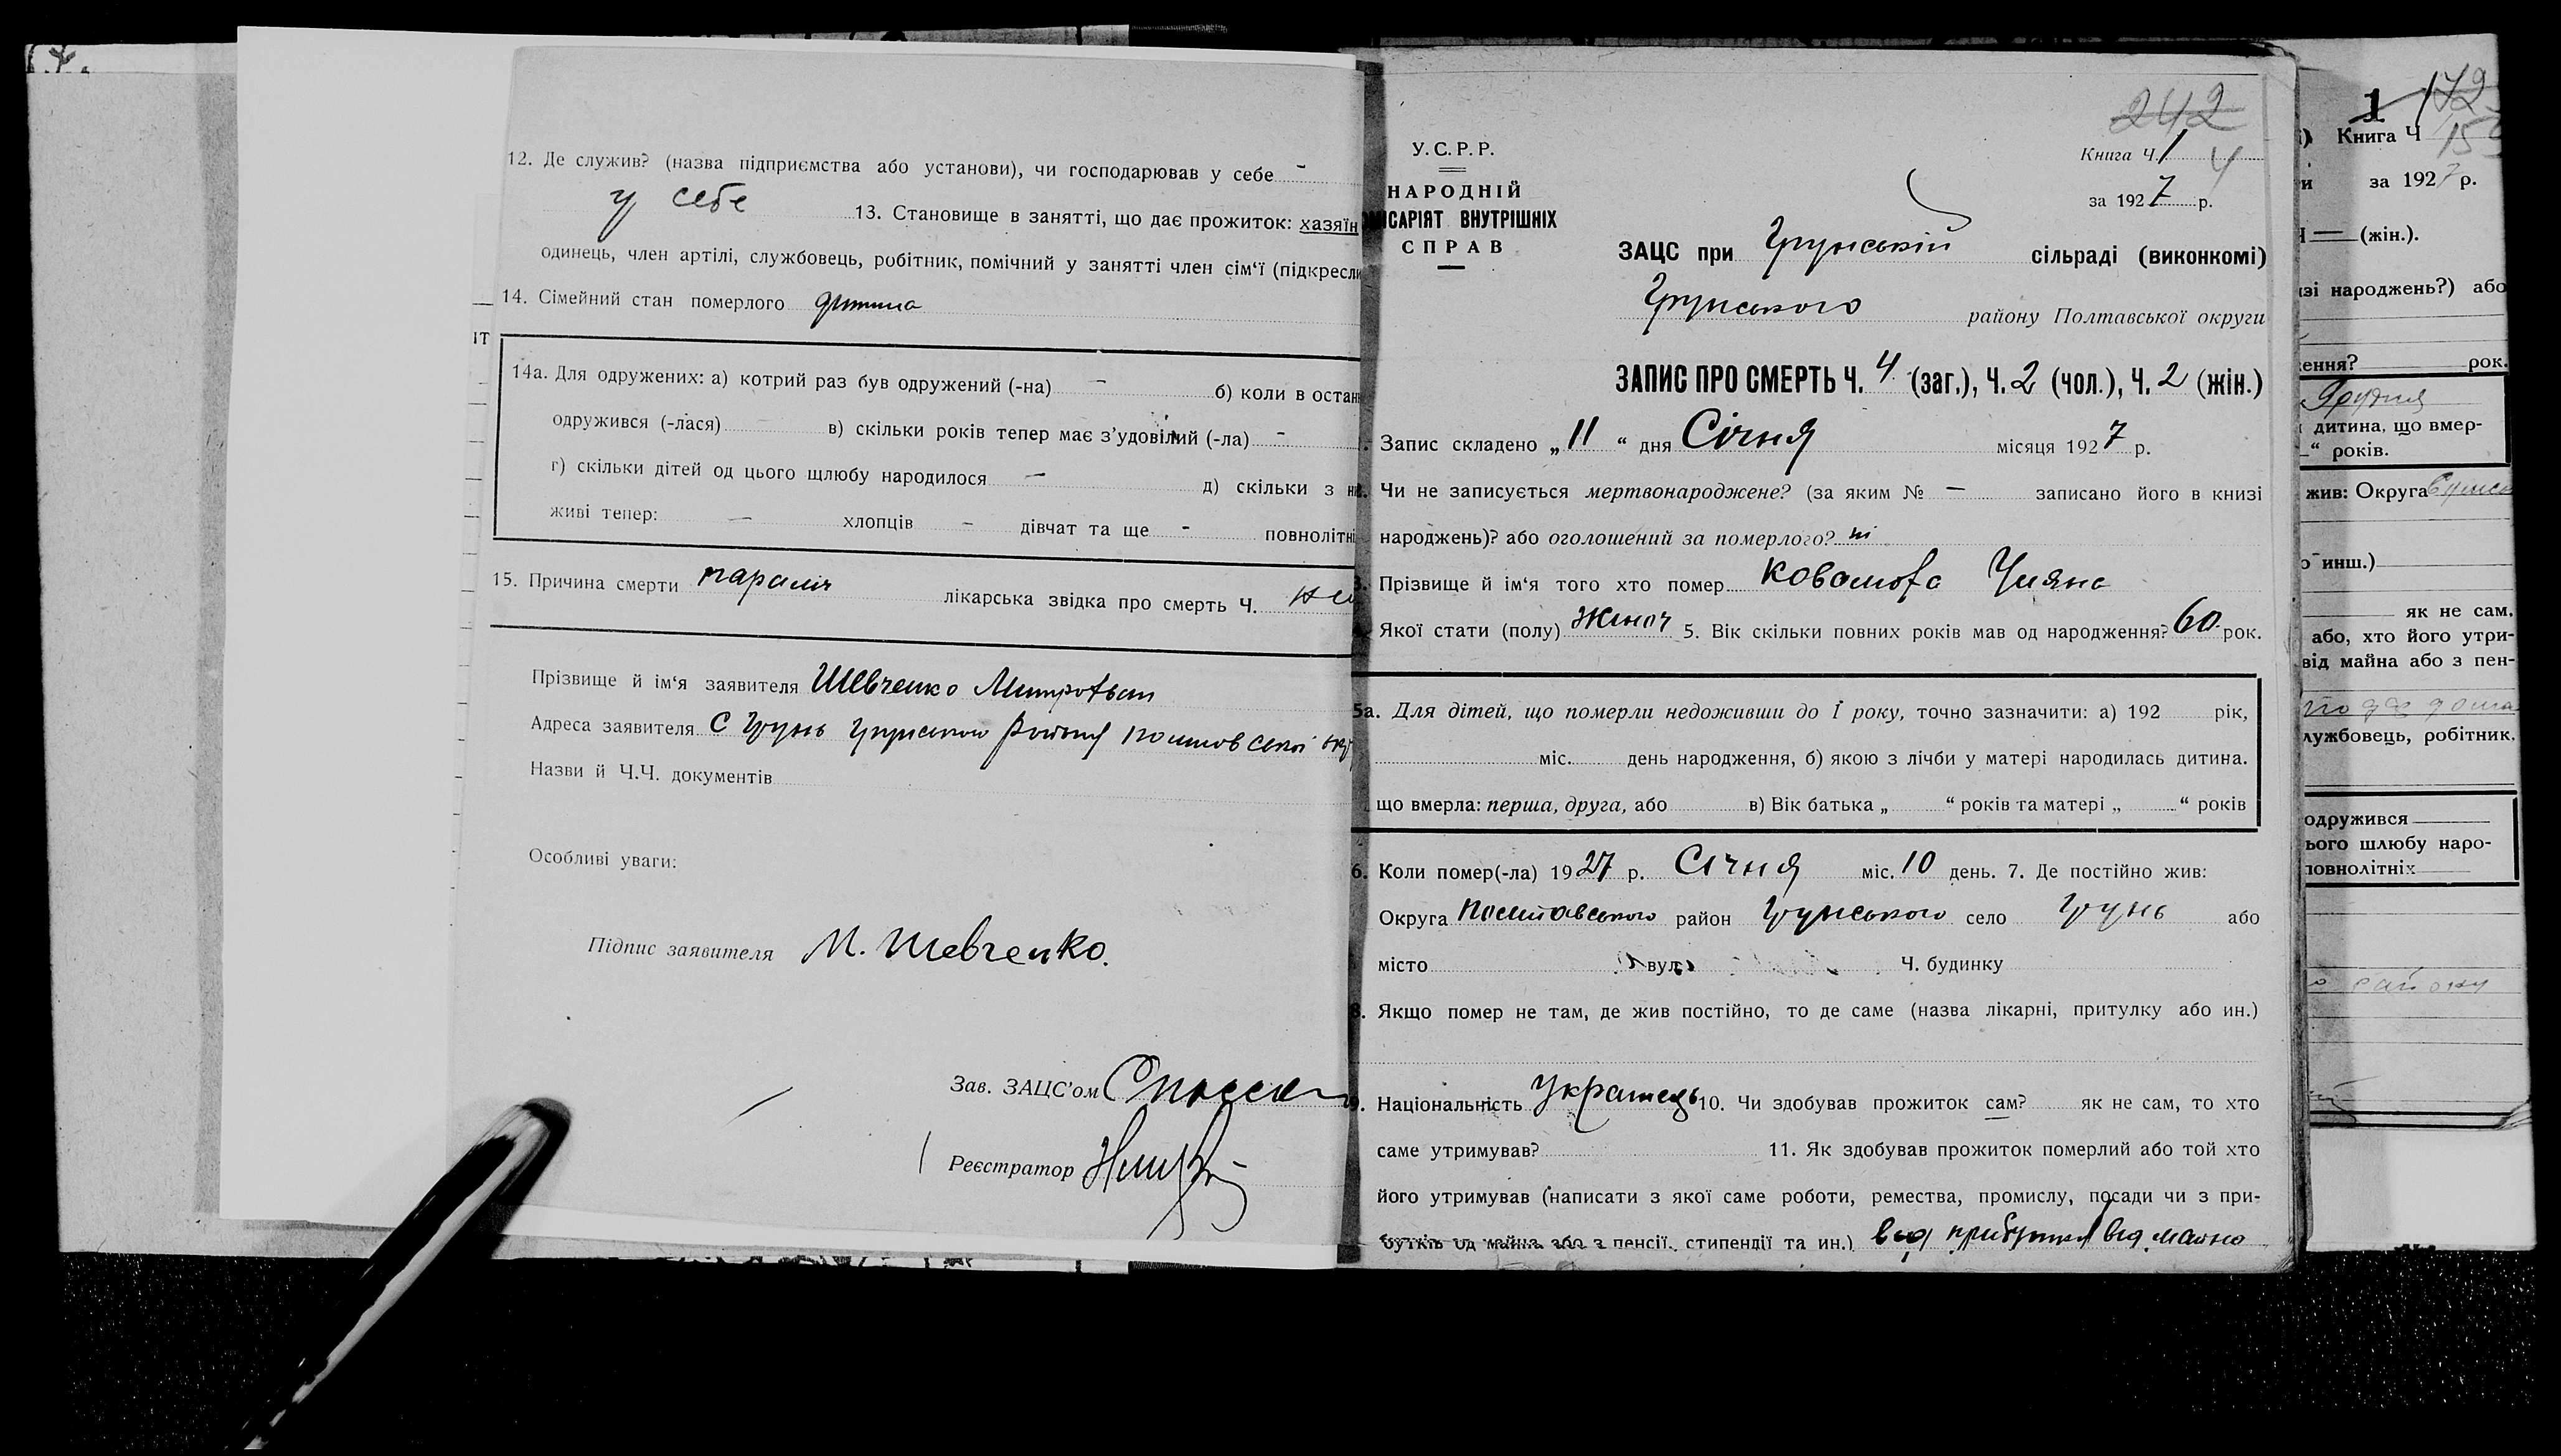 12. Де служив? (назва підприємства або установи), чи господарював у себе -
у себе 13. Становище в занятті, що дає прожиток: хазяїн
одинець, член артілі, службовець, робітник, помічний у занятті член сім'ї (підкресли
14. Сімейний стан померлого дитина
14а. Для одружених: а) котрий раз був одружений (-на) — б) коли в остан
одружився (-лася) в) скільки років тепер має з'удовілий (-ла) -
г) скільки дітей од цього шлюбу народилося — д) скільки з
живі тепер: — хлопців - дівчат та ще - повнолітні
15. Причина смерти параліч лікарська звідка про смерть Ч.
Прізвище й ім'я заявителя Шевченко Митрофан
Адреса заявителя С Грунь Грунського району Полтавської окр
Назви й Ч.Ч. документів
Особливі уваги:
Підпис заявителя М. Шевченко.
Зав. ЗАЦС'ом
Реєстратор
242
Книга Ч. 1 4
за 1927 р.
У.С.Р.Р.
НАРОДНІЙ
МІСАРІЯТ ВНУТРІШНІХ
СПРАВ
ЗАЦС при Грунській сільраді (виконкомі)
Грунського району Полтавської округи
ЗАПИС ПРО СМЕРТЬ Ч. 4 (заг.), Ч. 2 (чол.), Ч. 2 (жін.)
Запис складено „11“ дня Січня місяця 1927 р.
Чи не записується мертвонароджене? (за яким № — записано його в книзі
народжень)? або оголошений за померлого? ні
3. Прізвище й ім'я того хто помер Уляна
Якої стати (полу) жіноч 5. Вік скільки повних років мав од народження? 60 рок.
5а. Для дітей, що померли недоживши до 1 року, точно зазначити: а) 192 рік,
міс. день народження, б) якою з лічби у матері народилась дитина.
що вмерла: перша, друга, або в) Вік батька „ “ років та матері „ “ років
6. Коли помер(-ла) 1927 р. Січня міс. 10 день. 7. Де постійно жив:
Округа Полтавського район Грунського село Грунь або
місто вул. Ч. будинку
8. Якщо помер не там, де жив постійно, то де саме (назва лікарні, притулку або ин.)
9. Національність Українець 10. Чи здобував прожиток сам? як не сам, то хто
саме утримував? 11. Як здобував прожиток померлий або той хто
його утримував (написати з якої саме роботи, ремества, промислу, посади чи з при-
бутків од майна або з пенсії, стипендії та ин.) від прибутків від майна
1 172
Книга Ч 15
и за 1927 р.
— (жін.).
зі народжень?) або
ення? рок.
дитина, що вмер-
“ років.
жив: Округа
о инш.)
як не сам,
або, хто його утри-
від майна або з пен-
лужбовець, робітник.
одружився
ього шлюбу наро-
повнолітніх
району